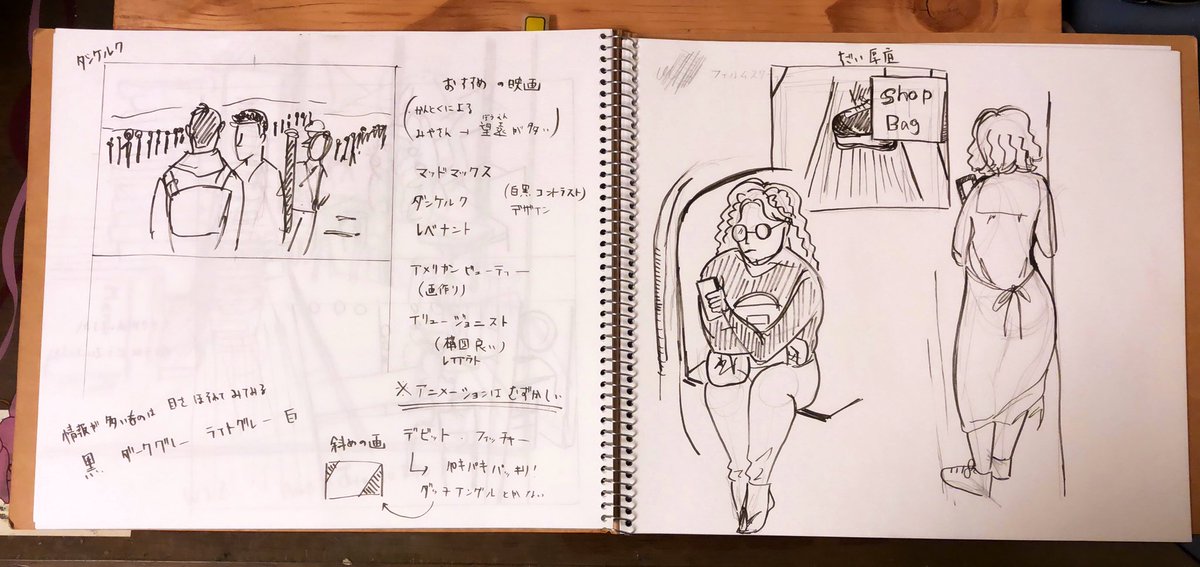 ダンケルク
おすすめの映画
かんとくによる
みやさん→望遠が多い
ぼうえん
マッドマックス
ダンケルク
(白黒コントラスト)
デザイン
レベナント
アメリカンビューティー
(画作り)
イリュージョニスト
(構図良い)
レイアウト
※アニメーションはむずかしい
情報が多いものは 目を ほそめてみてみる
黒 ダークグレー ライトグレー 白
斜めの画
デビット・フィッチャー
バッキリ!
ダッチアングルとか
フィルムスタ
Shop
Bag